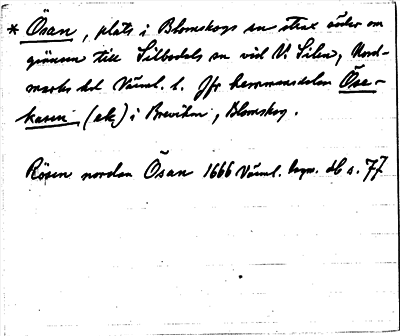 * Ösan, plats i Blomskogs sn strax söder om
gränsen till Silbodals sn vid V. Silen, Nord-
marks hd Värml. l. Jfr hemmansdelen Öse-
kasen (ek) i Brevikn, Blomskog.
Rösen norden Ösan 1666 Värml. hgm. db s. 77